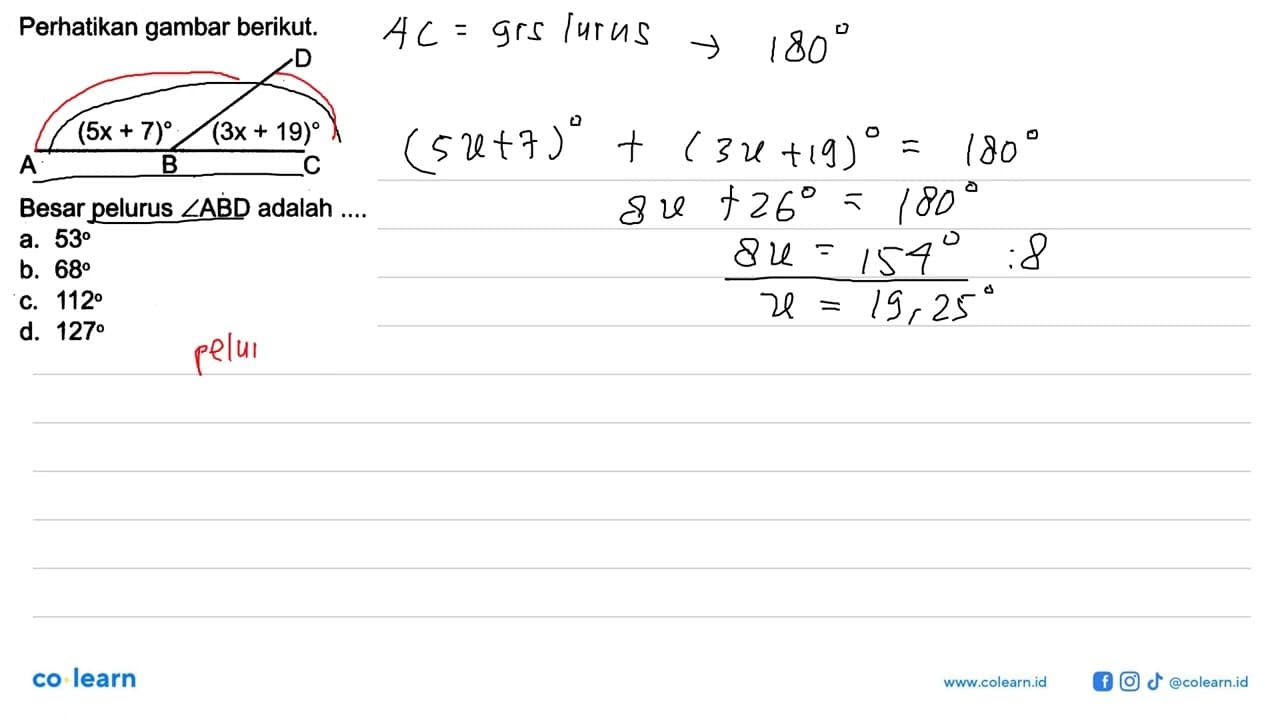 Perhatikan gambar berikut.
D
(5x + 7)° (3x + 19)°
A B C
Besar pelurus ∠ABD adalah ....
a. 53°
b. 68°
c. 112°
d. 127°
pelur
AC = grs lurus → 180°
(5x+7)° + (3x+19)° = 180°
8x + 26° = 180°
8x = 154° :8
x = 19,25°
co learn
www.colearn.id @colearn.id